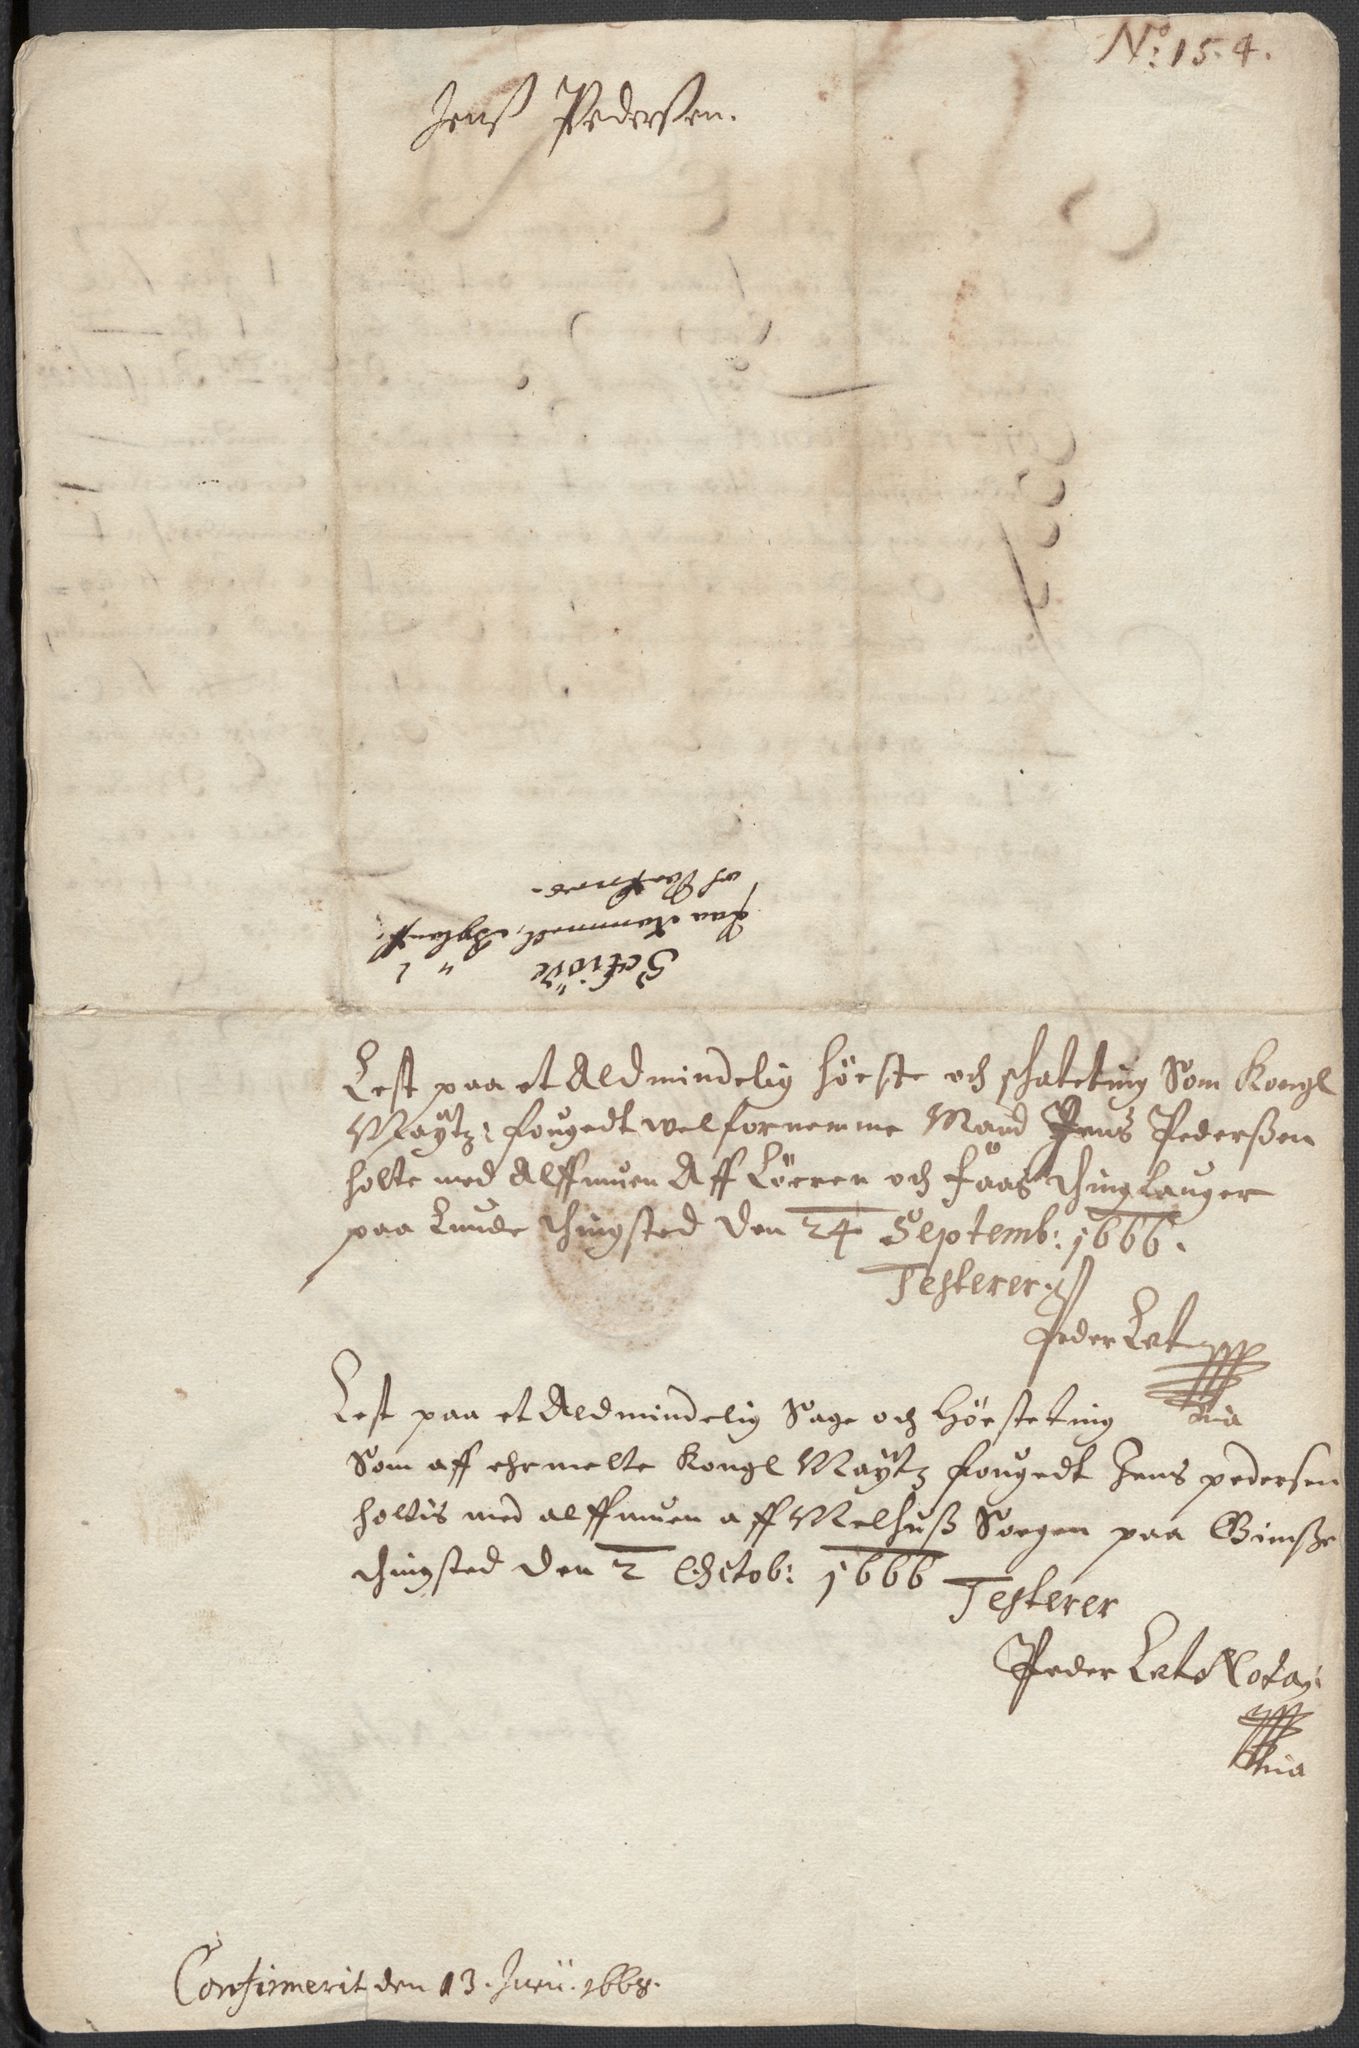 No: 15. 4.
Jens Pedersen.
Schiöde
paa Gammell,
och
Lest paa et Aldmindelig höeste och schateting Som Kongl
Maÿtz: fougedt welfornemme Mand Jens Pederßen
holte med Alffmuen Aff Löeren och faas thinglauger
paa Lunde thingsted Den 24 Septemb: 1666.
Testerer
Peder Lat
mia
Lest paa et Aldmindelig Sage och Höesteting
Som aff ehrmelte Kongl Maÿtz fougedt Jens pedersen
holtis med alffmuen aff Melhuß Soegen paa Gimße
thingsted Den 2 Octob: 1666
Testerer
Peder Lat Notag:
mia
Confirmerit den 13. Junÿ. 1668.